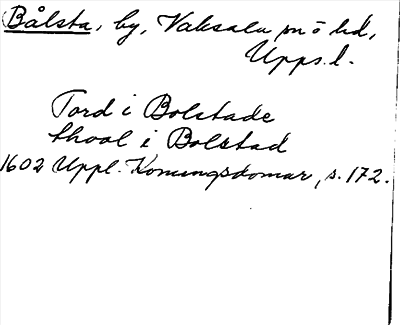 Bålsta, by, Vaksala sn o hd,
Upps. l.
Tord i Bolstade
thool i Bolstad
1602 Uppl. Konungsdomar, s. 172.